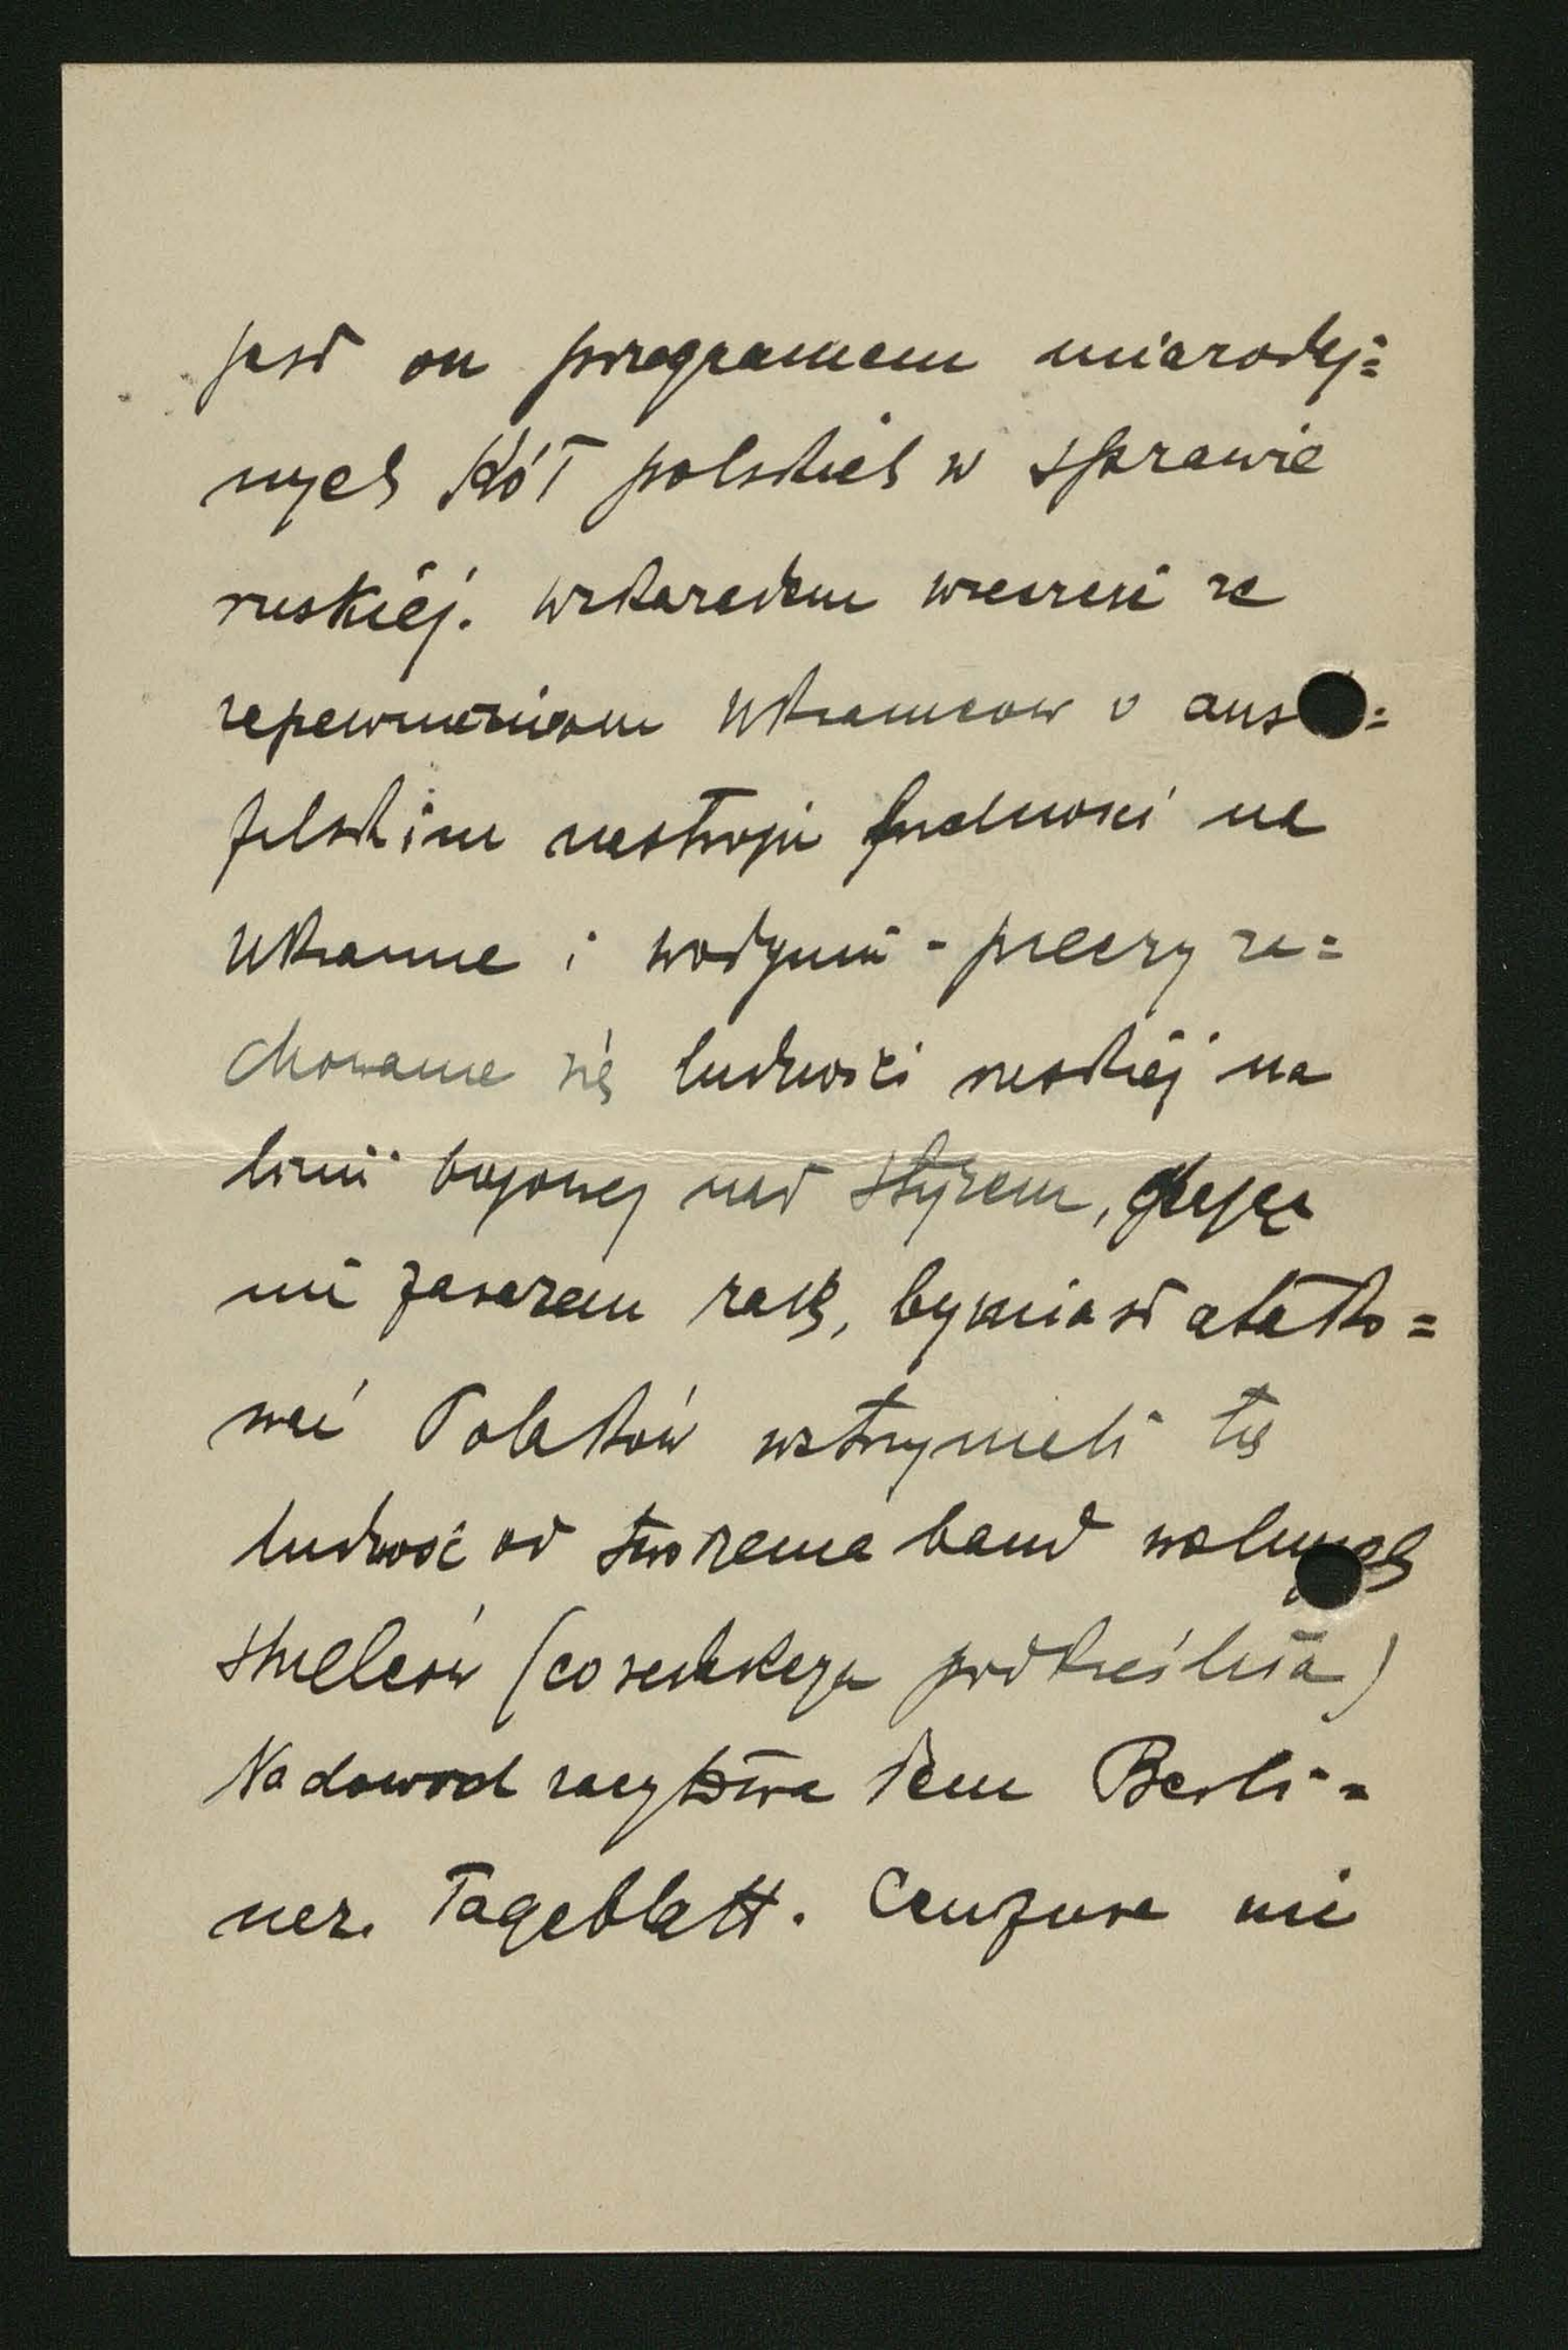 jest on programem miarodaj=
nych Kół polskich w sprawie
ruskiej. Wskazałem wreszcie że
zapewnieniom Ukrainców o aust
filskim nastroju ludności na
Ukrainie i Wołyniu - przeczy za=
chowanie się ludności ruskiej na
linii bojowej nad Styrem,
mi zarazem radę, by miast atako=
wać Polaków wstrzymali tę
ludność od tworzenia band wolnych
strzelców (co redakcya podkreśliła)
Na dowód zacytowałem Berli=
ner. Tageblatt. Cenzura nie